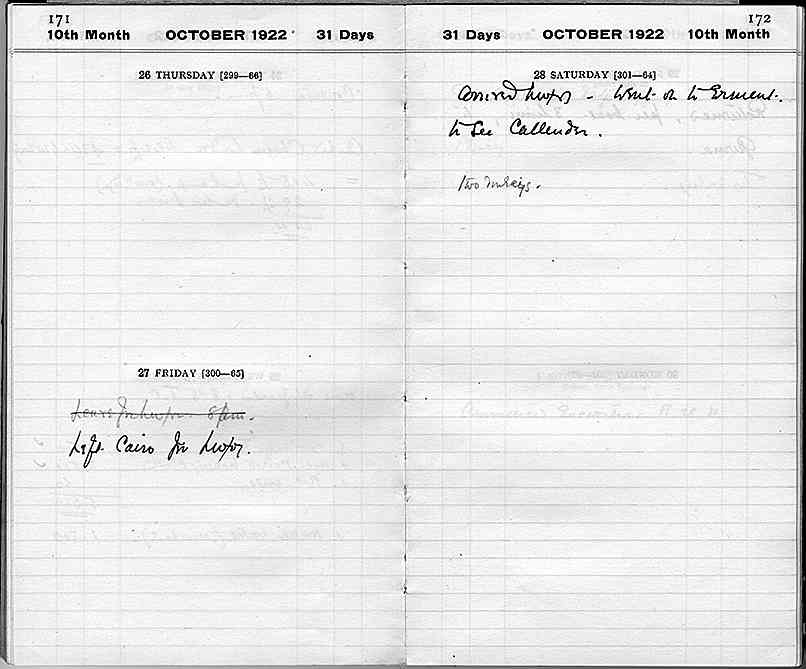 171
10th Month OCTOBER 1922 31 Days
26 THURSDAY [299—66]
27 FRIDAY [300—65]
Leave for Luxor 8 pm.
Left Cairo for Luxor.
172
31 Days OCTOBER 1922 10th Month
28 SATURDAY [301—64]
Arrived Luxor - Went on to Erment.
to see Callender.
two